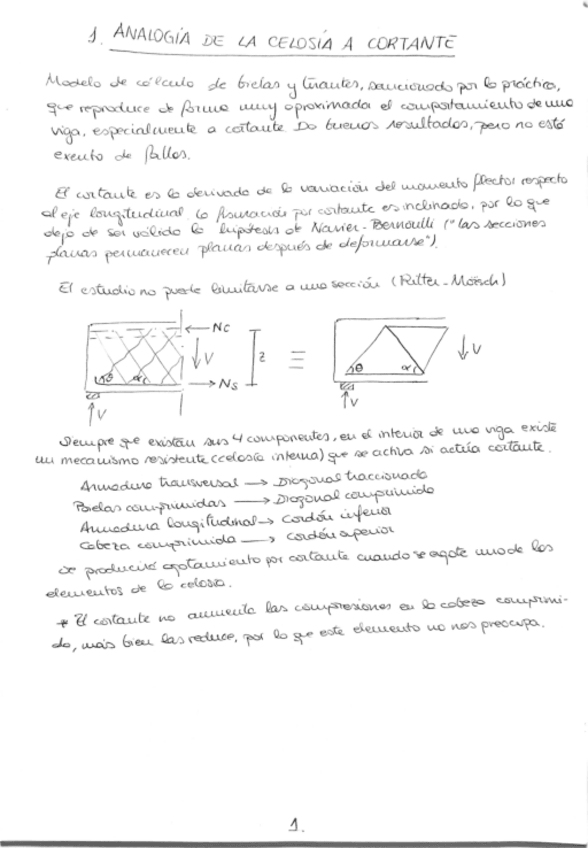 1. ANALOGÍA DE LA CELOSÍA A CORTANTE
Modelo de cálculo de bielas y tirantes, sancionado por la práctica,
que reproduce de forma muy aproximada el comportamiento de una
viga, especialmente a cortante. Da buenos resultados, pero no está
exento de fallos.
El cortante es la derivada de la variación del momento flector respecto
al eje longitudinal. La fisuración por cortante es inclinada, por lo que
deja de ser válida la hipótesis de Navier-Bernoulli ("las secciones
planas permanecen planas después de deformarse").
El estudio no puede limitarse a una sección (Ritter-Mörsch)
Nc
V
z
θ α
Ns
V
≡
θ α
V
V
Siempre que existan sus 4 componentes, en el interior de una viga existe
un mecanismo resistente (celosía interna) que se activa si actúa cortante.
Armadura transversal → Diagonal traccionada
Bielas comprimidas → Diagonal comprimida
Armadura longitudinal → Cordón inferior
Cabeza comprimida → Cordón superior
Se producirá agotamiento por cortante cuando se agote uno de los
elementos de la celosía.
* El cortante no aumenta las compresiones en la cabeza comprimi-
da, más bien las reduce, por lo que este elemento no nos preocupa.
1.